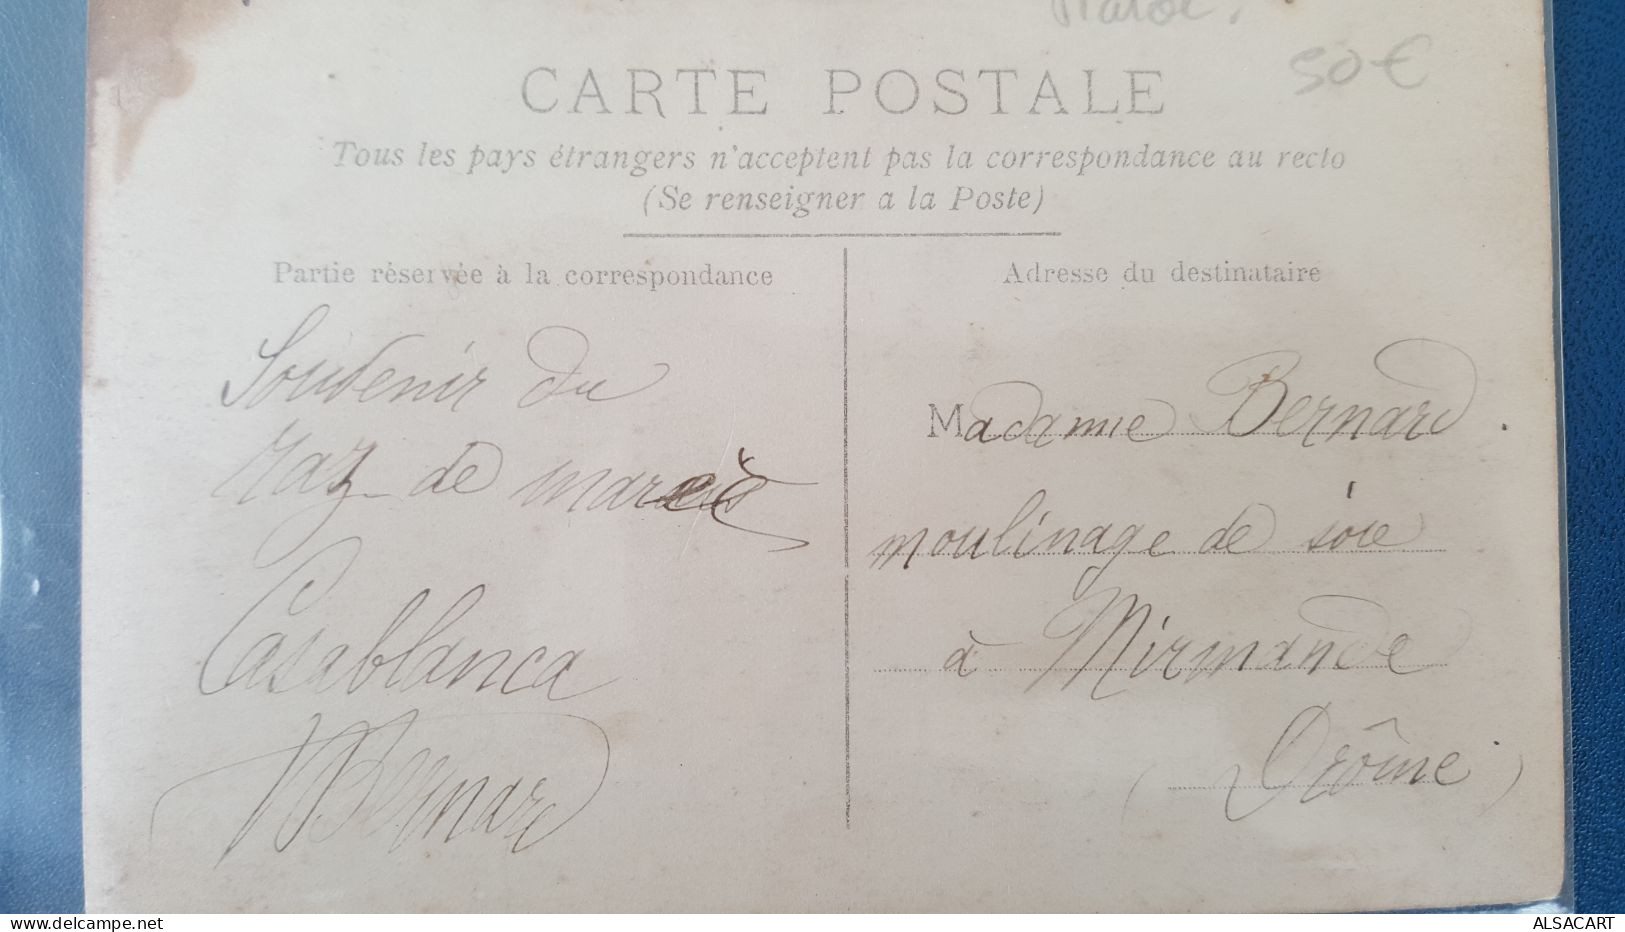 Maroc.
50€
CARTE POSTALE
Tous les pays étrangers n'acceptent pas la correspondance au recto
(Se renseigner a la Poste)
Partie réservée à la correspondance
Adresse du destinataire
Souvenir du
raz de
Casablanca
Bernard
Madame Bernard.
moulinage de soie
à Mirmande
(Drôme)
www.delcampe.net
ALSACART